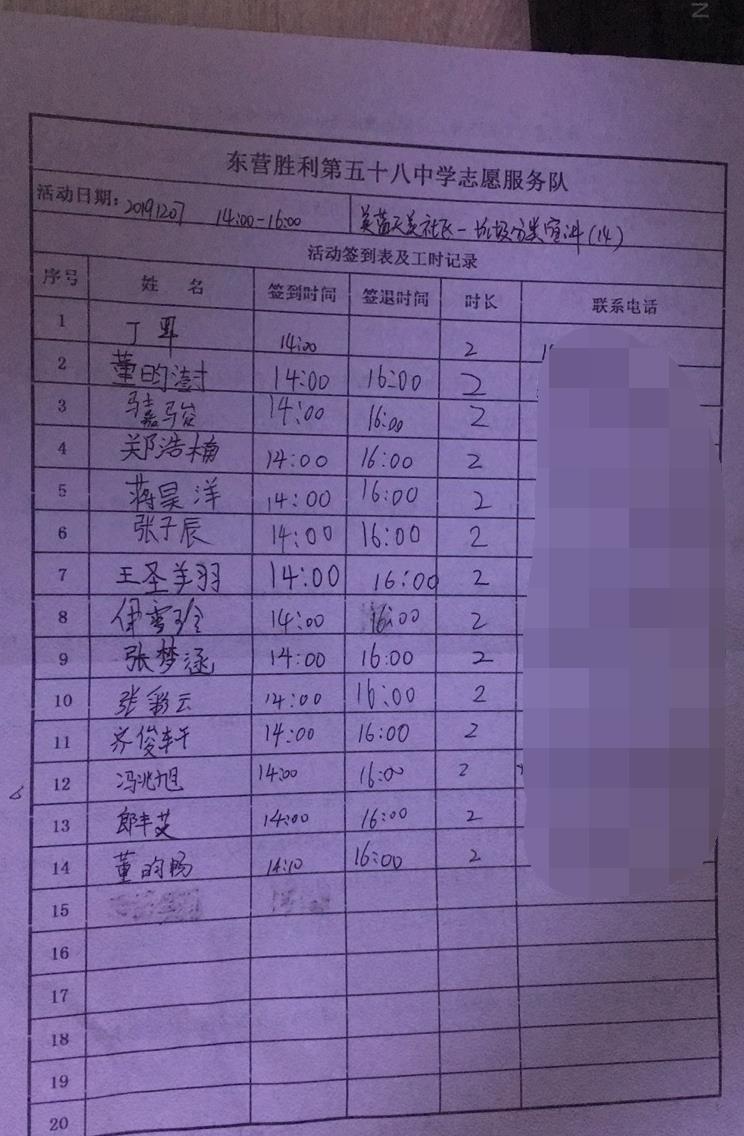 东营胜利第五十八中学志愿服务队
活动日期: 20191207 14:00-16:00 天美社区-垃圾分类宣讲(14)
活动签到表及工时记录
序号 姓名 签到时间 签退时间 时长 联系电话
1 丁 14:00 2
2 董昀澍 14:00 16:00 2
3 嘉骏 14:00 16:00 2
4 郑浩楠 14:00 16:00 2
5 蒋昊洋 14:00 16:00 2
6 张子辰 14:00 16:00 2
7 王圣美羽 14:00 16:00 2
8 伊雯玲 14:00 16:00 2
9 张梦涵 14:00 16:00 2
10 张彩云 14:00 16:00 2
11 齐俊轩 14:00 16:00 2
12 冯兆旭 14:00 16:00 2
13 郎丰艾 14:00 16:00 2
14 董昀畅 14:10 16:00 2
15
16
17
18
19
20